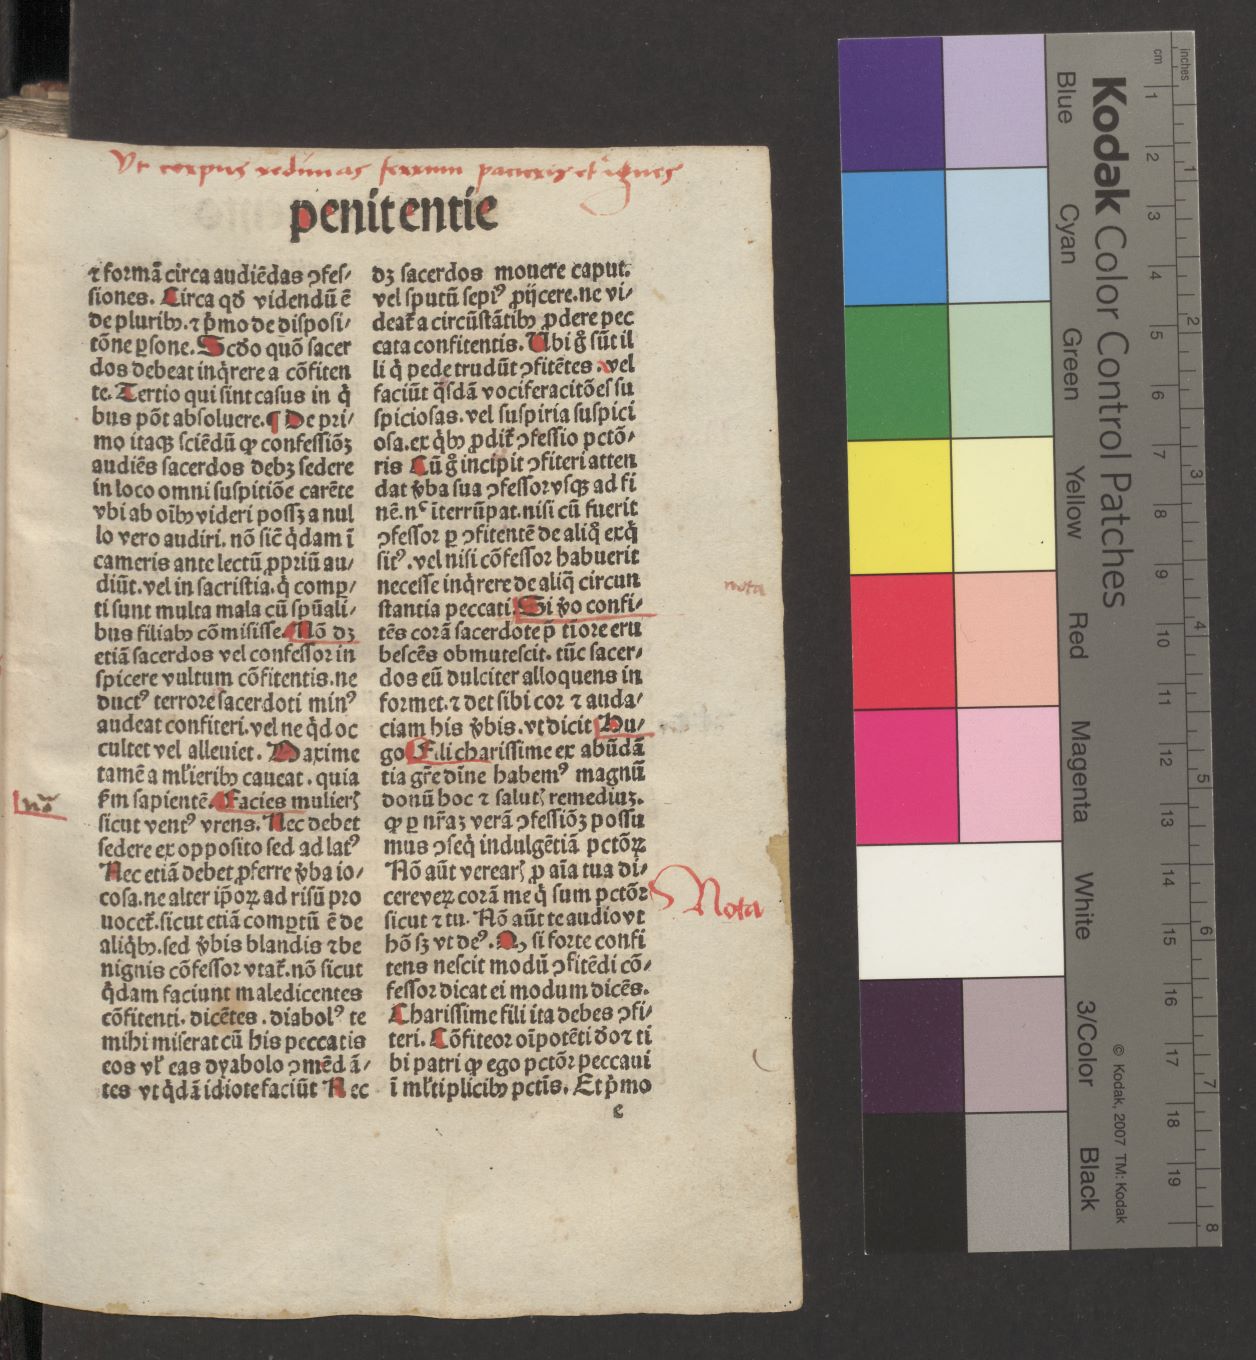 Vt corpus redimas ferrum pacieris et ignes
penitentie
⁊ formā circa audiēdas ꝯfes/
siones. Circa qđ videndū ē
de pluribꝰ. ⁊ p̄mo de disposi/
tōne ꝑsone. Scđo quō sacer
dos debeat inq̇rere a cōfiten
te. Tertio qui sint casus in q̇
bus pōt absoluere. ¶ De pri/
mo itaqꝫ sciēdū ꝙ confessiōꝫ
audiēs sacerdos debꝫ sedere
in loco omni suspitiōe carēte
vbi ab oībꝰ videri possꝫ a nul
lo vero audiri. nō sic̄ q̇dam ī
cameris ante lectū ꝓpriū au/
diūt. vel in sacristia. q̇ comp/
ti sunt multa mala cū spūali/
bus filiabꝰ cōmisisse. Nō dꝫ
etiā sacerdos vel confessor in
spicere vultum cōfitentis. ne
ductꝰ terrore sacerdoti minꝰ
audeat confiteri. vel ne q̇d oc
cultet vel alleuiet. Maxime
tamē a ml̄ieribꝰ caueat. quia
fm̄ sapientē. Facies mulierꝭ
sicut ventꝰ vrens. Nec debet
sedere ex opposito sed ad latꝰ
Nec etiā debet ꝓferre v̄ba io/
cosa. ne alter ip̄oꝝ ad risū pro
uocet̄. sicut etiā comꝑtū ē de
aliq̇bꝰ. sed v̄bis blandis ⁊ be
nignis cōfessor vtat̄. nō sicut
q̇dam faciunt maledicentes
cōfitenti. dicētes. diabolꝰ te
mihi miserat cū his peccatis
eos vl̄ eas dyabolo ꝯmēdā/
tes vt q̇dā idiote faciūt Nec
dꝫ sacerdos mouere caput.
vel sputū sepiꝰ ꝓijcere. ne vi/
deat̄ a circūstātibꝰ ꝓdere pec
cata confitentis. Vbi g̊ sūt il
li q̇ pede trudūt ꝯfitētes. vel
faciūt q̄sdā vociferacitōes su
spiciosas. vel suspiria suspici
osa. ex q̇bꝰ ꝓdit̄ ꝯfessio pctō/
ris Cū g̊ incipit ꝯfiteri atten
dat v̄ba sua ꝯfessor vsqꝫ ad fi
nē. nᶜ iterrūpat. nisi cū fuerit
ꝯfessor ꝑ ꝯfitentē de aliq̊ exq̇
sitꝰ. vel nisi cōfessor habuerit
necesse inq̇rere de aliq̄ circun
stantia peccati. Si v̄o confi/
tēs corā sacerdote p̄ tiore eru
bescēs obmutescit. tūc sacer/
dos eū dulciter alloquens in
formet. ⁊ det sibi cor ⁊ auda/
ciam his v̄bis. vt dicit Hu/
go Fili charissime ex abūdā
tia gr̄e dīne habemꝰ magnū
donū hoc ⁊ salutꝭ remediuꝫ.
ꝙ ꝑ nr̄aꝫ verā ꝯfessiōꝫ possu
mus ꝯseq̇ indulgētiā pctōꝝ
Nō aūt verearꝭ ꝓ aīa tua di/
cere veꝝ corā me q̇ sum pctōr
sicut ⁊ tu. Nō aūt te audio vt
hō sꝫ vt deꝰ. Qꝫ si forte confi
tens nescit modū ꝯfitēdi cō/
fessor dicat ei modum dicēs.
Charissime fili ita debes ꝯfi/
teri. Cōfiteor oīpotēti đo ⁊ ti
bi patri ꝙ ego pctōr peccaui
ī ml̄tiplicibꝰ pctīs. Et p̄mo
e
nō
nota
Nota
Kodak Color Control Patches
Blue Cyan Green Yellow Red Magenta White 3/Color Black
© Kodak, 2007 TM: Kodak
cm 1 2 3 4 5 6 7 8 9 10 11 12 13 14 15 16 17 18 19
inches 1 2 3 4 5 6 7 8